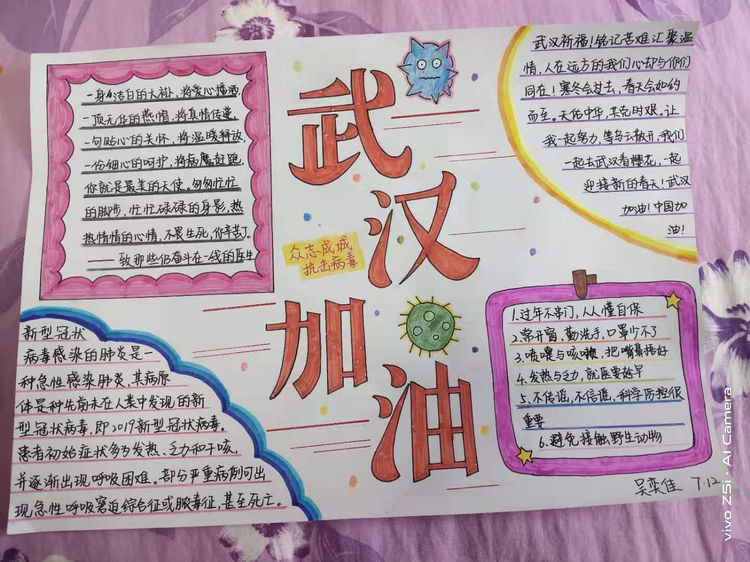 武汉加油
众志成城
抗击病毒
一身洁白的大褂，将爱心播洒.
一顶无任的热情，将真情传递.
一句贴心的关怀，将温暖释放，
一份细心的呵护，将病魔赶跑，
你就是最美的天使。匆匆忙忙
的脚步，忙忙碌碌的身影，热
热情情的心情，不畏生死，你辛苦了。
——致那些仍奋斗在一线的医生
武汉祈福！铭记苦难汇聚温
情，人在远方的我们心却与你们
同在！寒冬会过去，春天会如约
而至。天佑中华，共克时艰，让
我一起努力，等乌云散开，我们
一起去武汉看樱花，一起
迎接新的春天！武汉
加油！中国加
油！
新型冠状
病毒感染的肺炎是一
种急性感染肺炎，其病原
体是种先前未在人类中发现的新
型冠状病毒，即2019新型冠状病毒。
患者初始症状多为发热、乏力和干咳，
并逐渐出现呼吸困难。部分严重病例可出
现急性呼吸窘迫综合征或脓毒征，甚至死亡。
1.过年不串门，人人懂自保
2.常开窗，勤洗手，口罩少不了
3.喷嚏与咳嗽，把嘴鼻捂好
4.发热与乏力，就医要趁早
5.不传谣，不信谣，科学防控很
重要
6.避免接触野生动物
吴奕佳 7.12
vivo Z5i · AI Camera